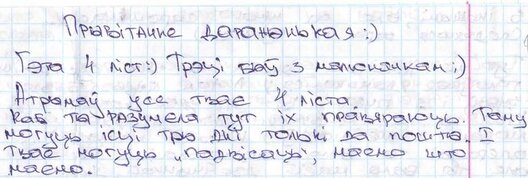 Прывітанне дараненькая:)
Гэта 4 ліст:) Трэці быў з малюначкам;)
Атрымаў усе твае 4 ліста
Каб ты разумела тут іх правяраюць. Таму
могуць ісці тры дні толькі да пошты. І
твае могуць "падвісаць", маемо што
маемо.